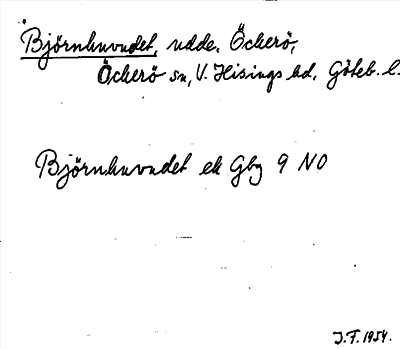 Björnhuvudet, udde, Öckerö,
Öckerö sn, V. Hisings hd, Göteb. l.
Björnhuvudet ek Gbg 9 NO
J.F. 1954.